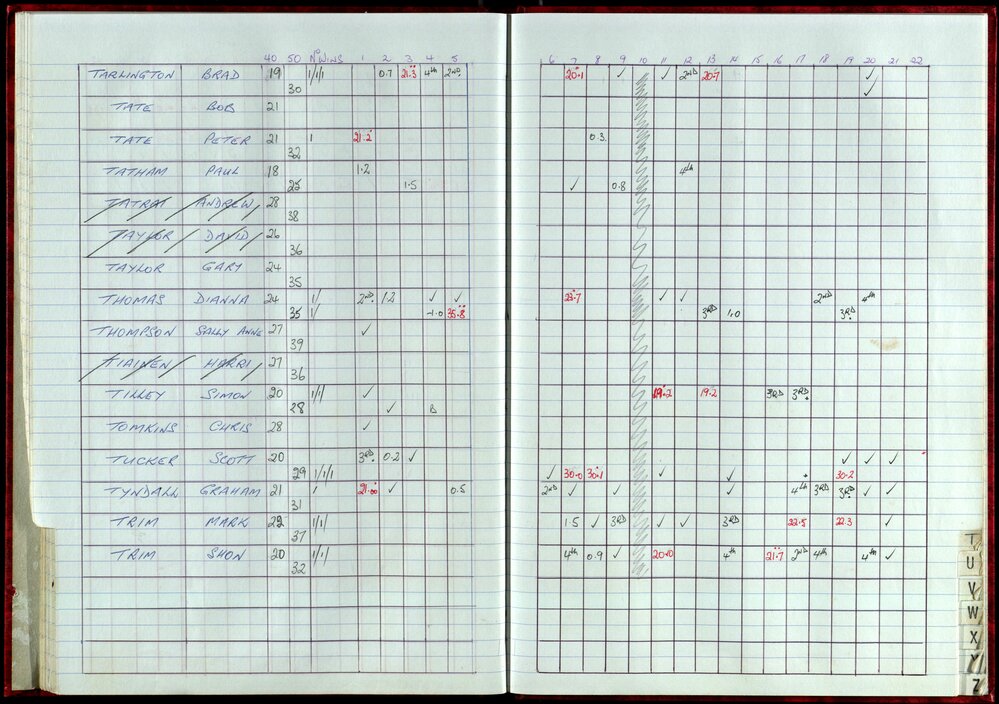 40 50 Nº WINS 1 2 3 4 5 6 7 8 9 10 11 12 13 14 15 16 17 18 19 20 21 22
TARLINGTON BRAD 19 1/1/1 0.7 21.3 4th 2ND 20.1 ✓ ✓ 2ND 20.7 ✓
30 ✓
TATE BOB 21
TATE PETER 21 1 21.2 0.3
32
TATHAM PAUL 18 1.2 4th
25 1.5 ✓ 0.8
TATRAI ANDREW 28
38
TAYLOR DAVID 26
36
TAYLOR GARY 24
35
THOMAS DIANNA 24 1/ 2ND 1.2 ✓ ✓ 23.7 ✓ ✓ 2ND 4th
35 1/ -1.0 35.8 3RD 1.0 3RD
THOMPSON SALLY ANNE 27 ✓
39
TIAINEN HARRI 27
36
TILLEY SIMON 20 1/1/ ✓ 19.2 19.2 3RD 3RD
28 ✓
TOMKINS CHRIS 28 ✓
TUCKER SCOTT 20 3RD 0.2 ✓ ✓ ✓ ✓
29 1/1/1 ✓ 30.0 30.1 ✓ ✓ 30.2
TYNDALL GRAHAM 21 1 21.0 ✓ 0.5 2ND ✓ ✓ ✓ 4th 3RD 3RD ✓ ✓
31
TRIM MARK 22 1/1/ 1.5 ✓ 3RD ✓ ✓ 3RD 22.5 22.3 ✓
37
TRIM SHON 20 1/1/ 4th 0.9 ✓ 20.0 4th 21.7 2ND 4th 4th ✓
32
T
U
V
W
X
Y
Z